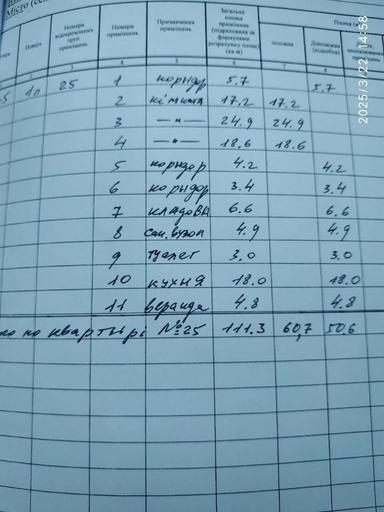 Місто (се
Поверх
Номери відокремлених груп приміщень
Номери приміщень
Призначення приміщень
Загальна площа приміщень (підрахована за формулами розрахунку площ) (кв.м)
Площа
житлова
Допоміжна (підсобна)
2 3 4 5 6 7 8
1п 25 1 коридор 5.7 5.7
2 кімната 17.2 17.2
3 —"— 24.9 24.9
4 —"— 18.6 18.6
5 коридор 4.2 4.2
6 коридор 3.4 3.4
7 кладова 6.6 6.6
8 сан.вузол 4.9 4.9
9 туалет 3.0 3.0
10 кухня 18.0 18.0
11 веранда 4.8 4.8
по квартирі №25 111.3 60,7 50.6
2025/3/22 14:58